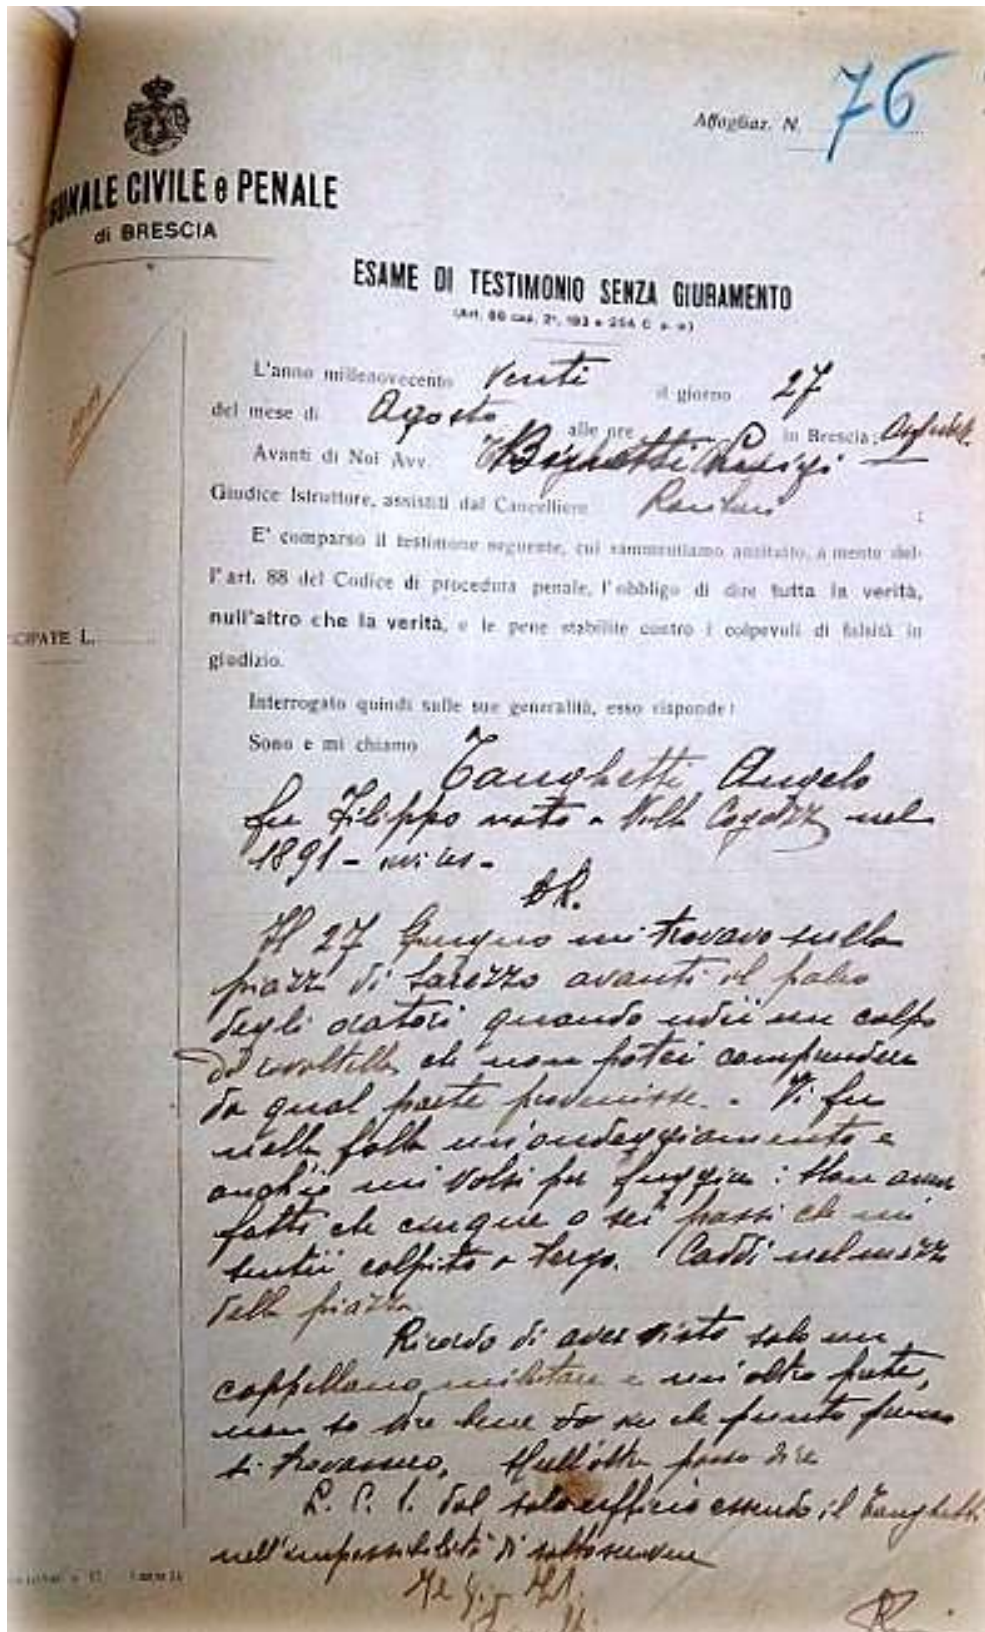 76
Affogliaz. N.
UNALE CIVILE e PENALE
di BRESCIA
ESAME DI TESTIMONIO SENZA GIURAMENTO
(Art. 88 cap. 2°, 193 e 254 C. p. p.)
L'anno millenovecento Venti il giorno 27
del mese di Agosto alle ore in Brescia;
Avanti di Noi Avv. Luigi
Giudice Istruttore, assistiti dal Cancelliere
E' comparso il testimone seguente, cui rammentiamo anzitutto, a mente del-
l'art. 88 del Codice di procedura penale, l'obbligo di dire tutta la verità,
null'altro che la verità, e le pene stabilite contro i colpevoli di falsità in
CIPATE L.
giudizio.
Interrogato quindi sulle sue generalità, esso risponde:
Sono e mi chiamo Tanghetti Angelo
fu Filippo nato a Villa Cogozzo nel
1891 -
D.R.
Il 27 Giugno mi trovavo sulla
piazza di Sarezzo avanti il palco
degli oratori quando udii un colpo
di rivoltella che non potei comprendere
da qual parte provenisse. Vi fu
nella folla un'ondeggiamento e
anch'io mi volsi per fuggire: Non avevo
fatti che cinque o sei passi che mi
sentii colpito a tergo. Caddi nel mezzo
della piazza
Ricordo di aver visto solo un
cappellano militare e un'altro prete,
non so dire bene da che punto preciso
si trovassero. Null'altro posso dire
L. C. S. dal solo ufficio essendo il Tanghetti
nell'impossibilità di sottoscrivere